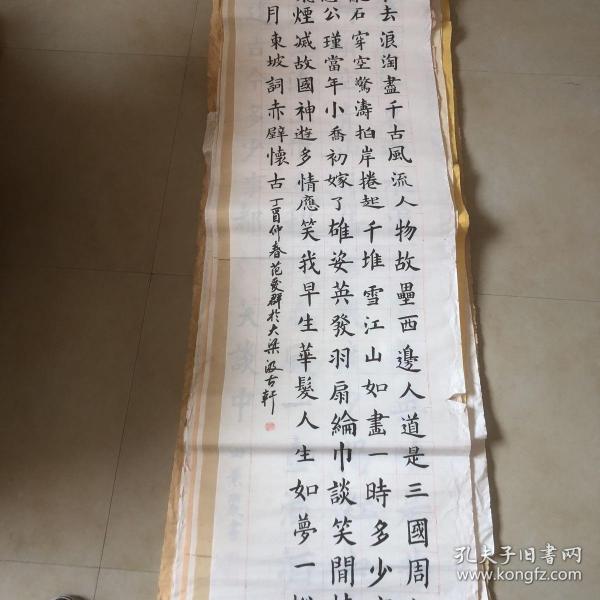 去浪淘盡千古風流人物故壘西邊人道是三國周
石穿空驚濤拍岸捲起千堆雪江山如畫一時多少
公瑾當年小喬初嫁了雄姿英發羽扇綸巾談笑間
煙滅故國神遊多情應笑我早生華髮人生如夢一
月東坡詞赤壁懷古丁酉仲春范愛群於大梁汲古軒
孔夫子旧書网
www.kongfz.com